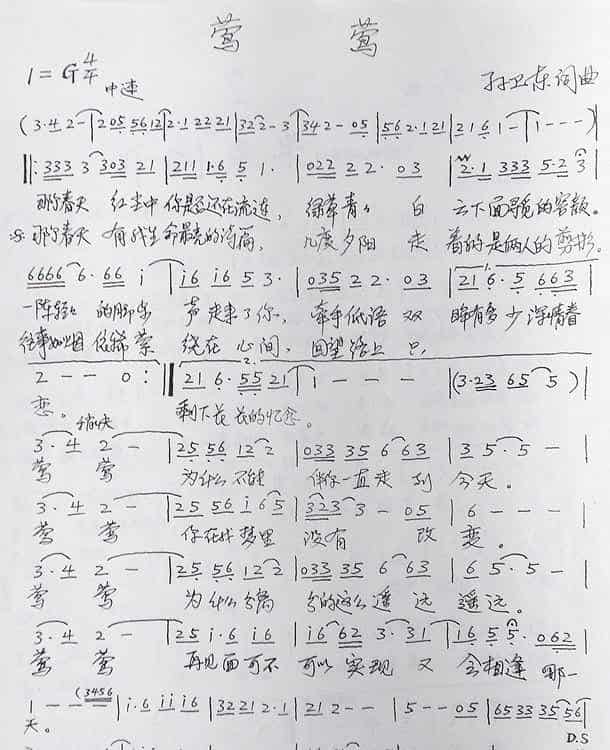 莺 莺
1=G 4/4 中速 孙卫东词曲
(3·4 2 - | 2 05 56 12 | 2·1 22 21 | 32 2 - 3 | 34 2 - 05 | 56 2·1 21 | 21 6 1 - | 1 - - - )
‖: 333 3 303 21 | 211 1·6 5 1· | 022 2 2· 03 | 2·1 333 5·2 3 |
那个春天 红尘中 你是否还在流连， 绿草青青 白 云下面寻觅的容颜。
𝄋 那个春天 有我生命最亮的诗篇， 几度夕阳 走 着的是俩人的剪影。
6666 6·66 i | i6 i6 5 3· | 035 2 2· 03 | 21 6·5 663 |
一阵轻轻 的脚步 声 走来了你， 牵手低语 双 眸有多少深情眷
往事如烟 依稀萦 绕在 心间， 回望路上 只
2 - - 0 :‖ 21 6·55 21 | 1 - - - | (3·23 65 5 ) |
恋。 剩下长长的忆念。
稍快
3·4 2 - | 25 56 12 2 | 033 35 6 63 | 3 5· 5 - |
莺 莺 为什么不能 伴你一直走 到 今天。
3·4 2 - | 25 56 i 65 | 323 3 - 05 | 6 - - - |
莺 莺 你在我梦里 没有 改 变。
3·4 2 - | 25 56 12 2 | 033 35 6 63 | 6 5· 5 - |
莺 莺 为什么分离 分的这么遥 远 遥远。
3·4 2 - | 25 i·6 i6 | i6 62 3· 31 | i6 5 5· 062 |
莺 莺 再见面可不 可以实现 又 会相逢 那一
1 - - (3456 | i·6 ii i6 | 32 22 1·2 1 | 21 2 - - | 5 - - 05 | 65 33 35 56 |
天。 D.S